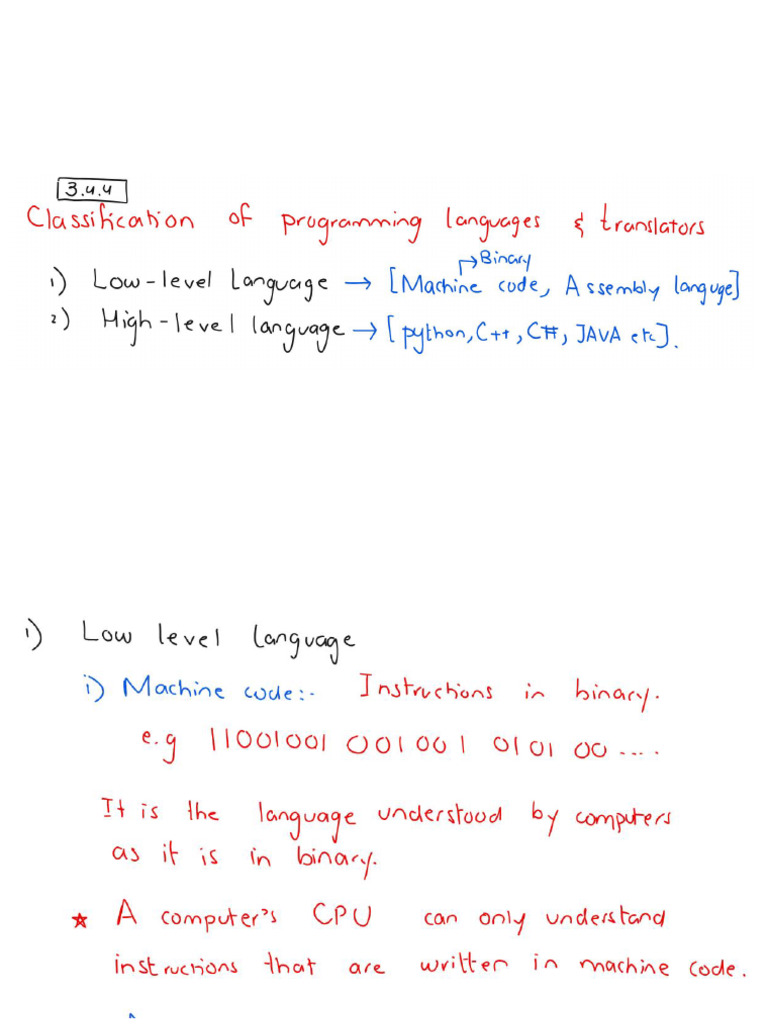 3.4.4
Classification of programming languages & translators
→Binary
1) Low-level Language → [Machine code, Assembly languge]
2) High-level language → [python, C++, C#, JAVA etc].
1) Low level language
i) Machine code:- Instructions in binary.
e.g 11001001 001001 0101 00 ....
It is the language understood by computers
as it is in binary.
★ A computer's CPU can only understand
instructions that are written in machine code.